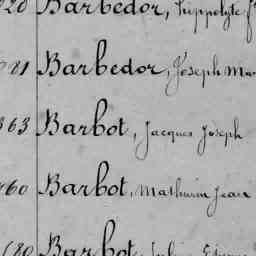 Barbedor, Hippolyte
Barbedor, Joseph Ma
363 Barbot, Jacques Joseph
460 Barbot, Mathurin Jean
Barbot, Julien